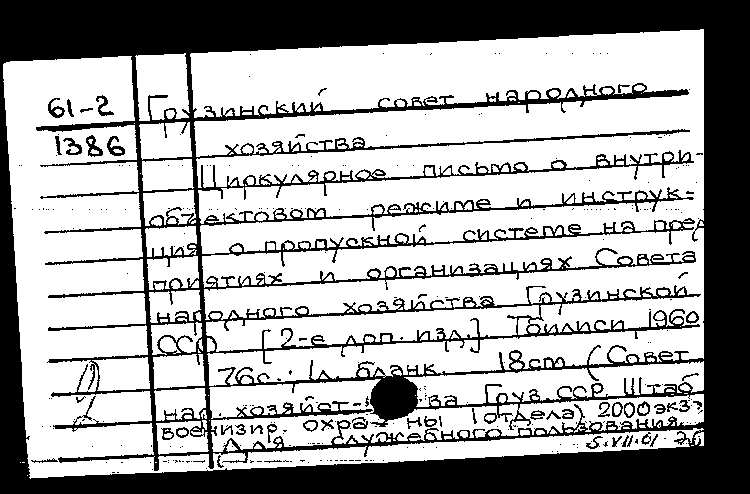 61-2
1386
Грузинский совет народного
хозяйства.
Циркулярное письмо о внутри-
объектовом режиме и инструк-
ция о пропускной системе на пред
приятиях и организациях Совета
народного хозяйства Грузинской
ССР. [2-е доп. изд.] Тбилиси, 1960
76с.; 1л. бланк. 18cm. (Совет
нар. хозяйст- ва Груз.ССР. Штаб
военизир. охра- ны (отдела) 2000экз.
Для служебного пользования.
2
5.VII.61